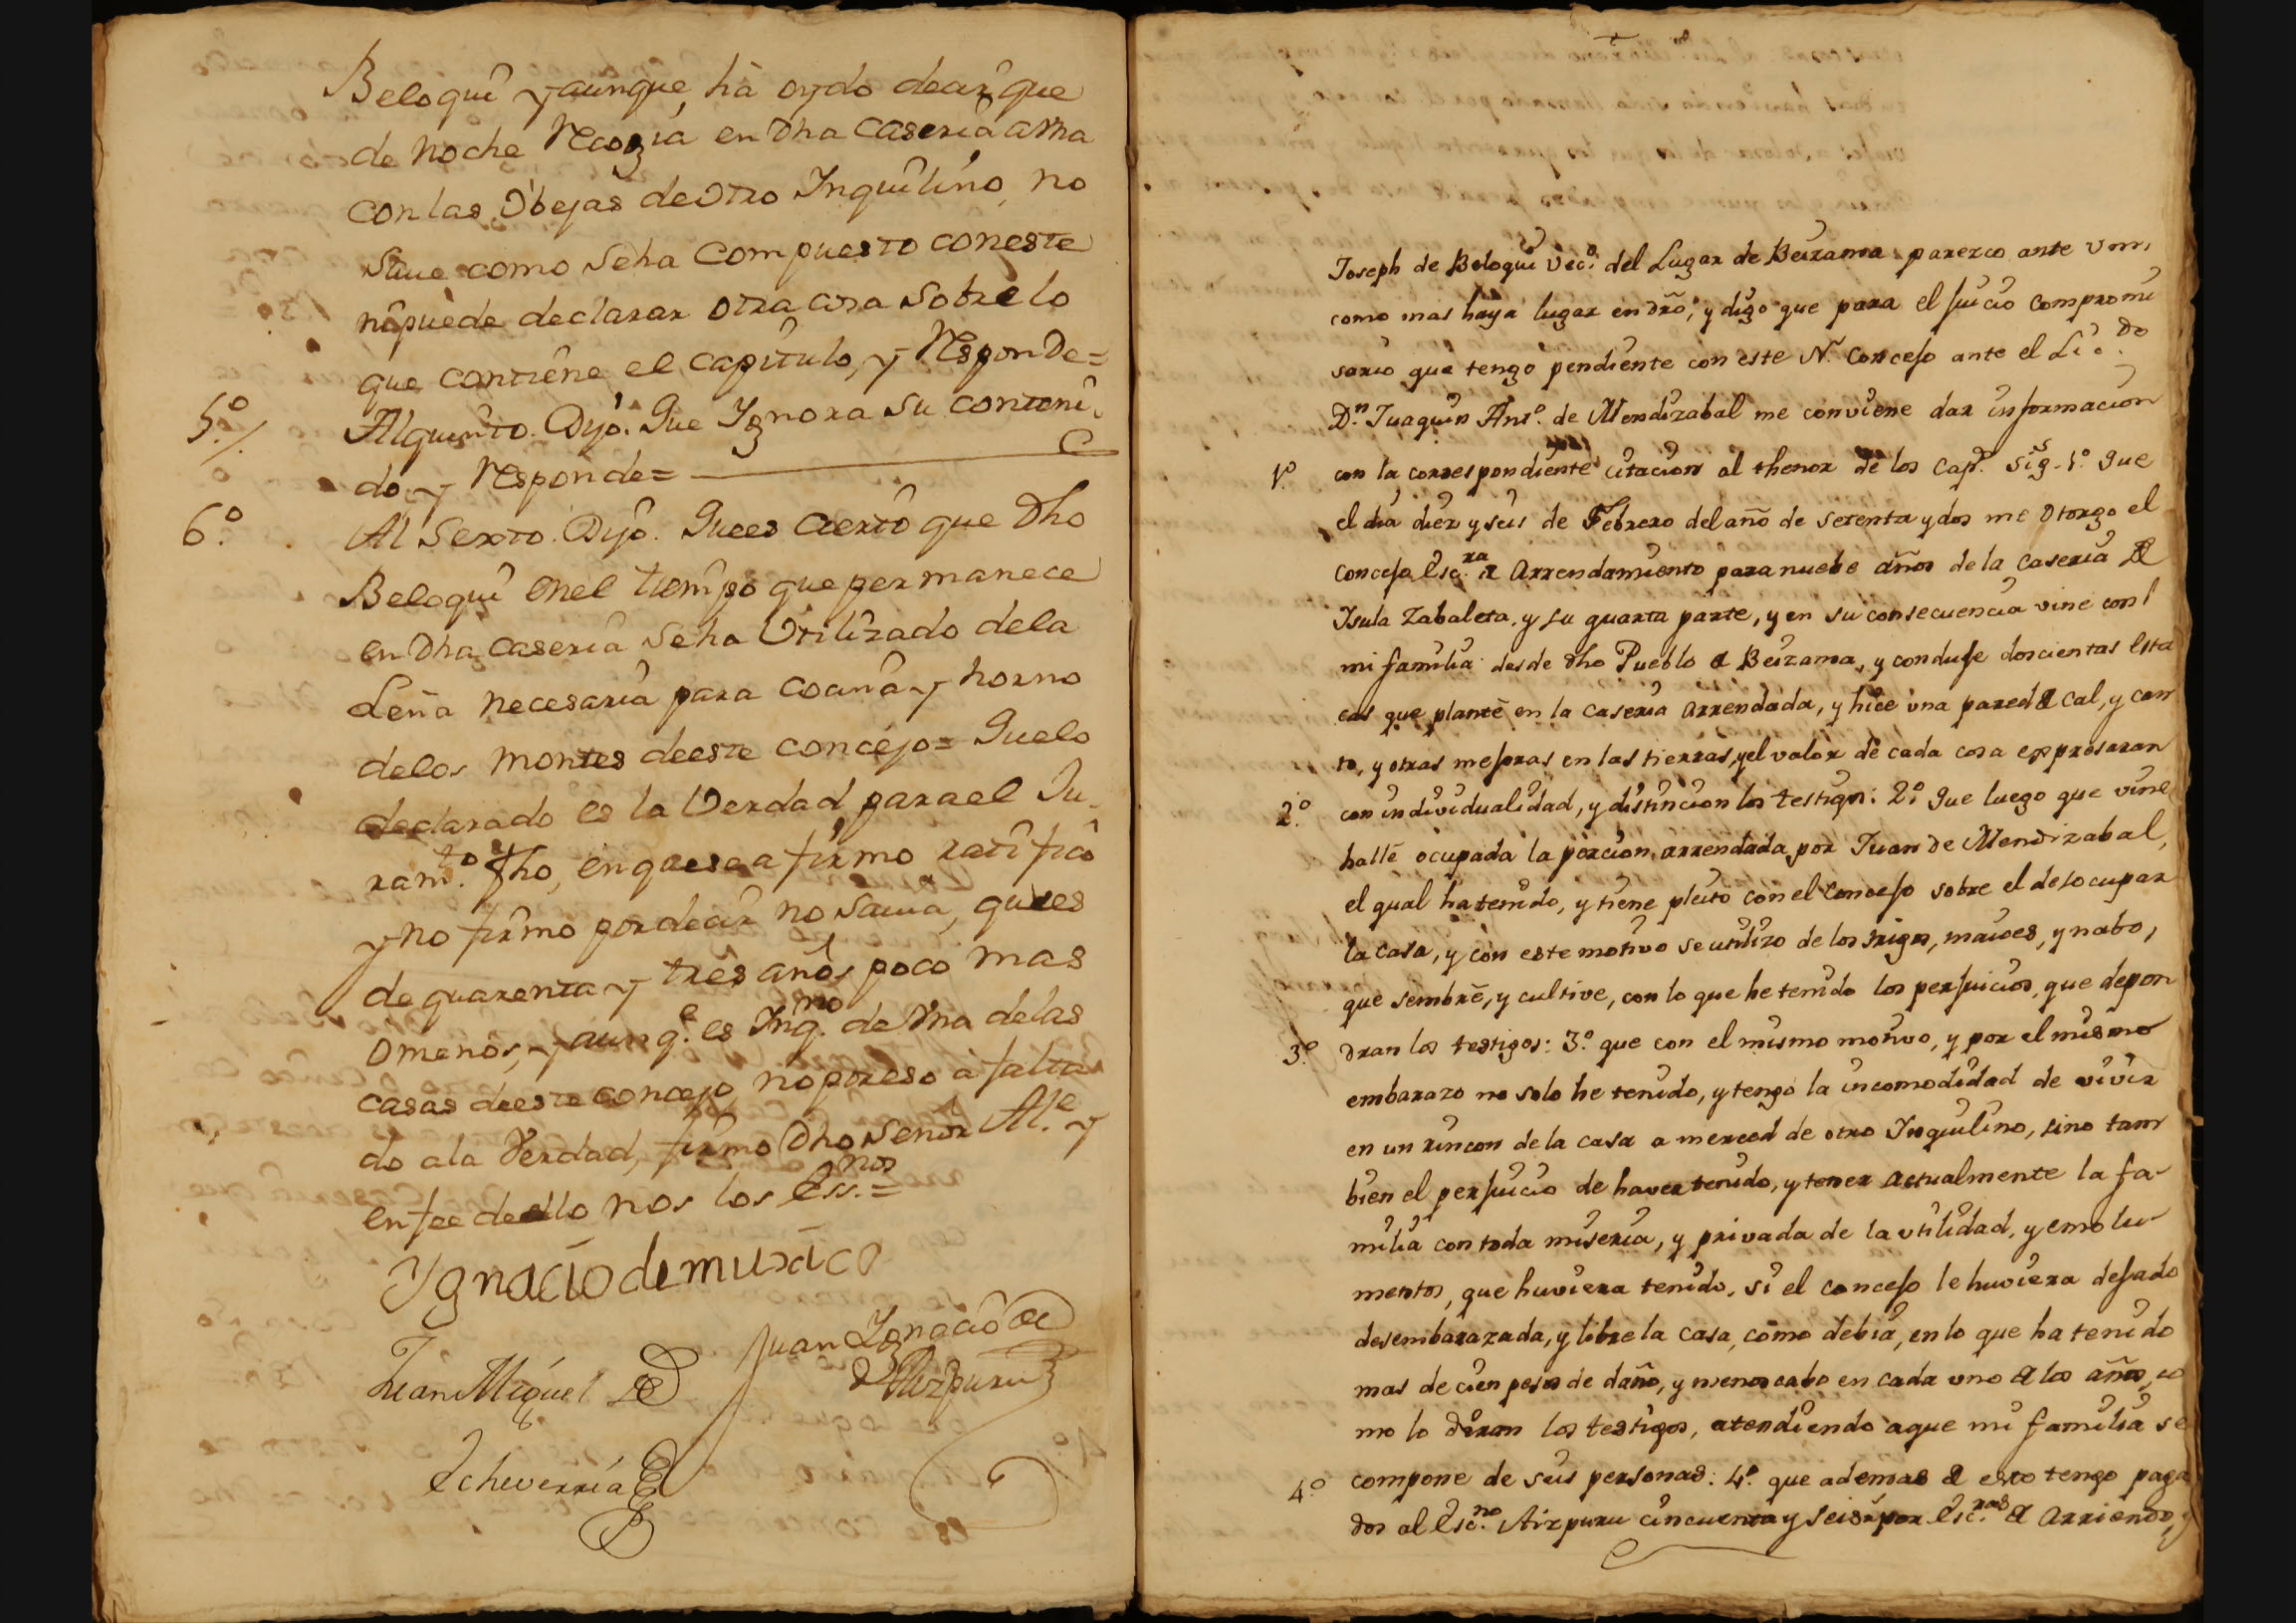 Beloqui y aunque ha oydo decir que
de noche Recogia en Dha Caseria a una
con las Obejas de Otro Inquilino, no
Save como se ha Compuesto con este
no puede declarar otra cosa Sobre lo
que contiene el capitulo, y Responde=
5.º/. Al quinto. Dijo. Que Ignora Su conteni-
do y Responde=
6.º Al Sexto. Dijo. Que es cierto que Dho
Beloqui en el tiempo que permanece
en Dha caseria Se ha Utilizado de la
Leña necesaria para cocina y horno
de los montes de este concejo= Que lo
declarado es la Verdad para el Ju-
ram.to fho, en que se afirmo ratifico
y no firmo por decir no Savia, que es
de quarenta y tres años poco mas
o menos, y aunq.e es Inq.no de Una de las
casas de este concejo, no por eso a falta
do a la Verdad, firmo Dho Señor Al.e y
en fee de ello nos los Ess.nos=
Ygnacio de muxica
Juan Ignacio de
Aizpuru
Juan Miguel de
Echeverria
Joseph de Beloqui vec.º del Lugar de Beizama parezco ante Vm,
como mas haya lugar en dro, y digo que para el juicio compromi
sario que tengo pendiente con este N. Concejo ante el Lic.do
D.n Juaquin Ant.º de Mendizabal me conviene dar informacion
1º con la correspondiente citacion al thenor de los Cap.s sig. 1.º que
el dia diez y seis de Febrero del año de setenta y dos me otorgo el
concejo Esc.ra de Arrendamiento para nuebe años de la Caseria de
Isula Zabaleta, y su quarta parte, y en su consecuencia vine con
mi familia desde dho Pueblo de Beizama, y conduje doscientas esta
cas que planté en la caseria arrendada, y hice una pared de cal, y can
to, y otras mejoras en las tierras, y el valor de cada cosa expresaran
2.º con individualidad, y distincion los testigos: 2.º que luego que vine
hallé ocupada la porcion arrendada por Juan de Mendizabal,
el qual ha tenido, y tiene pleito con el concejo sobre el desocupar
la casa, y con este motivo se utilizo de los trigos, maices, y nabo,
que sembré, y cultive, con lo que he tenido los perjuicios, que depon
3.º dran los testigos: 3.º que con el mismo motivo, y por el mismo
embarazo no solo he tenido, y tengo la incomodidad de vivir
en un rincon de la casa a merced de otro Inquilino, sino tam
bien el perjuicio de haver tenido, y tener actualmente la fa-
milia con toda miseria, y privada de la utilidad, y emolu-
mentos, que huviera tenido, si el concejo le huviera dejado
desembarazada, y libre la casa, como debia, en lo que ha tenido
mas de cien pesos de daño, y menoscabo en cada uno de los años, co
mo lo diran los testigos, atendiendo a que mi familia se
4.º compone de seis personas: 4.º que ademas de esto tengo paga
dos al Esc.no Aizpuru cincuenta y seis por Esc.ras de Arriendo, y